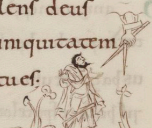 lens deus
iniquitatem
tues.